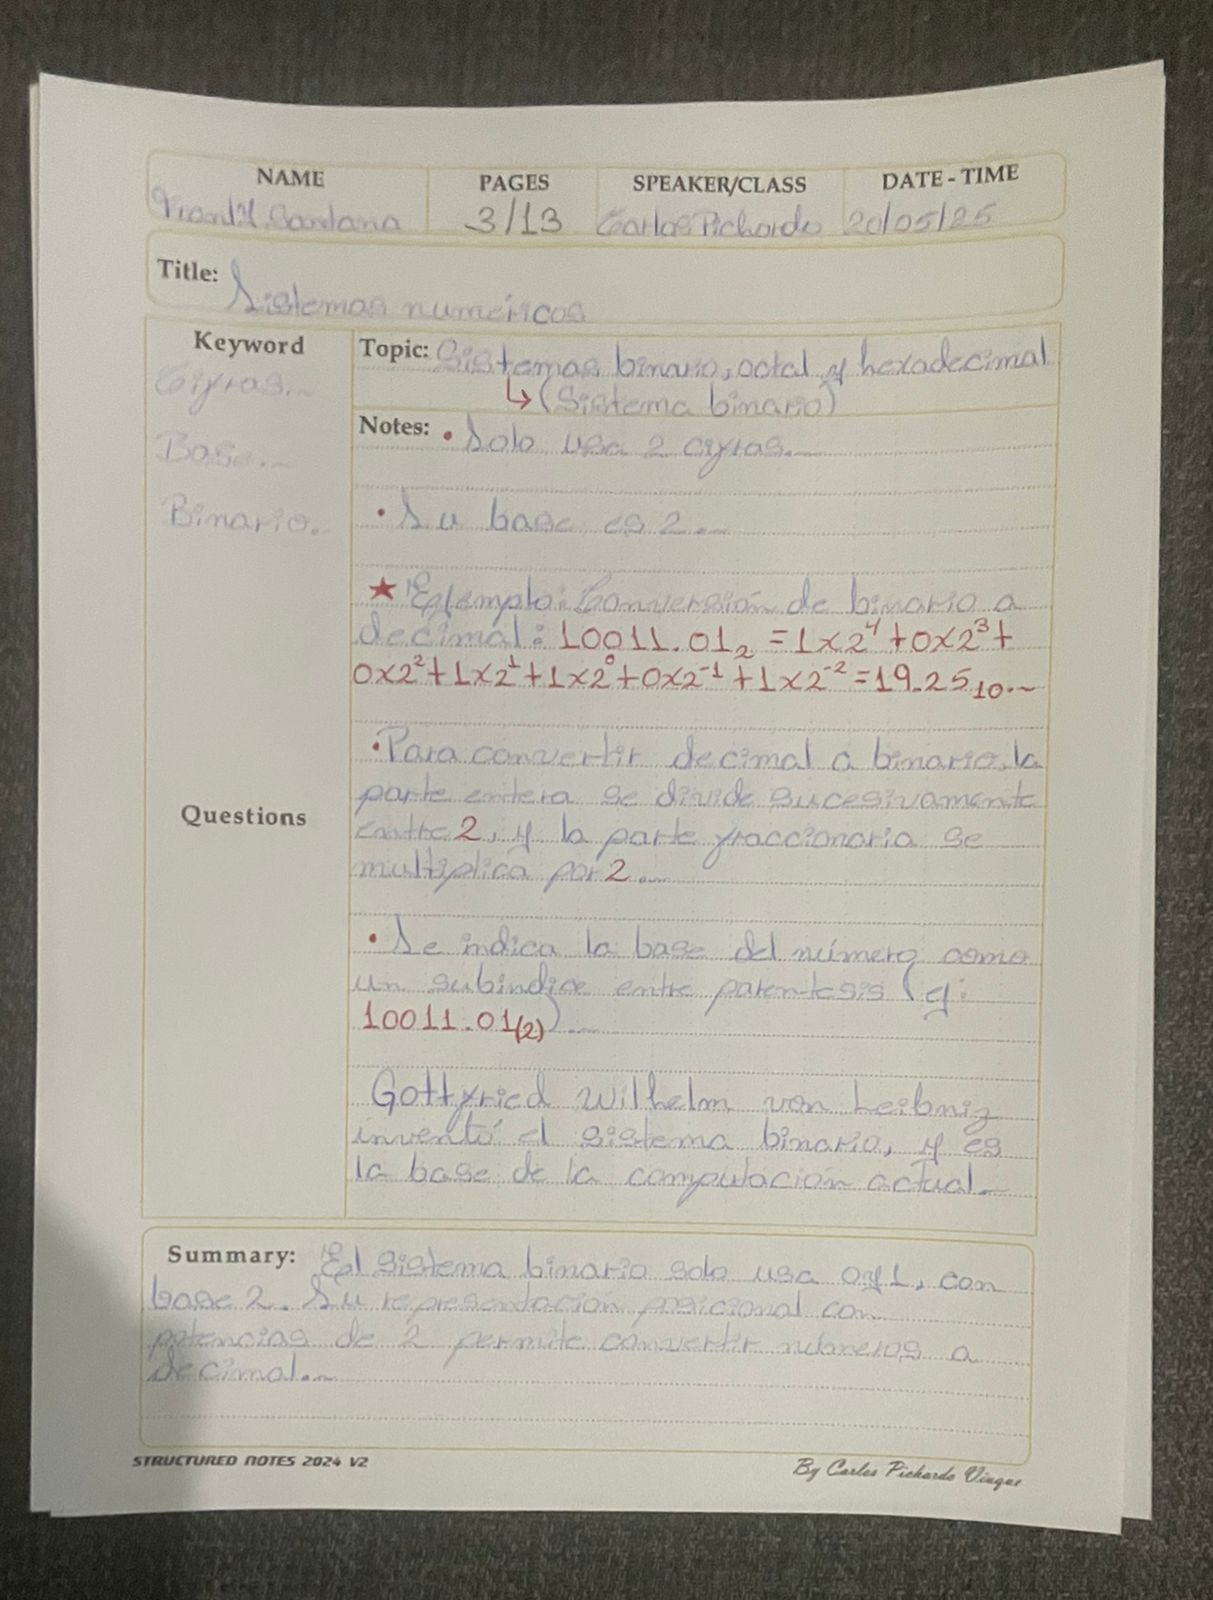 NAME PAGES SPEAKER/CLASS DATE - TIME
Santana 3/13 Carlos Pichardo 20/05/25
Title: Sistemas numéricos
Keyword
Cifras.
Base.
Binario.
Topic: Sistemas binario, octal y hexadecimal
↳ (Sistema binario)
Notes: • Solo usa 2 cifras.
• Su base es 2.
★ Ejemplo: Conversión de binario a
decimal: 10011.01₂ = 1x2⁴ + 0x2³ +
0x2² + 1x2¹ + 1x2⁰ + 0x2⁻¹ + 1x2⁻² = 19.25₁₀.
• Para convertir decimal a binario, la
parte entera se divide sucesivamente
entre 2, y la parte fraccionaria se
multiplica por 2.
Questions
• Se indica la base del número como
un subindice entre parentesis (ej:
10011.01₍₂₎).
Gottfried Wilhelm von Leibniz
inventó el sistema binario, y es
la base de la computación actual.
Summary: El sistema binario solo usa 0 y 1, con
base 2. Su representación posicional con
potencias de 2 permite convertir números a
decimal.
STRUCTURED NOTES 2024 V2
By Carlos Pichardo Viuque